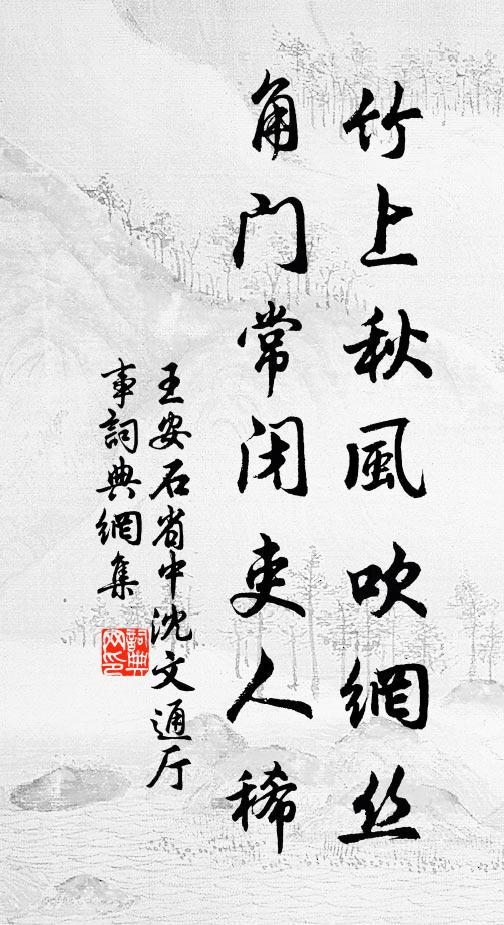 竹上秋風吹網丝
角门常闭吏人稀
王安石省中沈文通厅
事詞典網集
詞典
网印